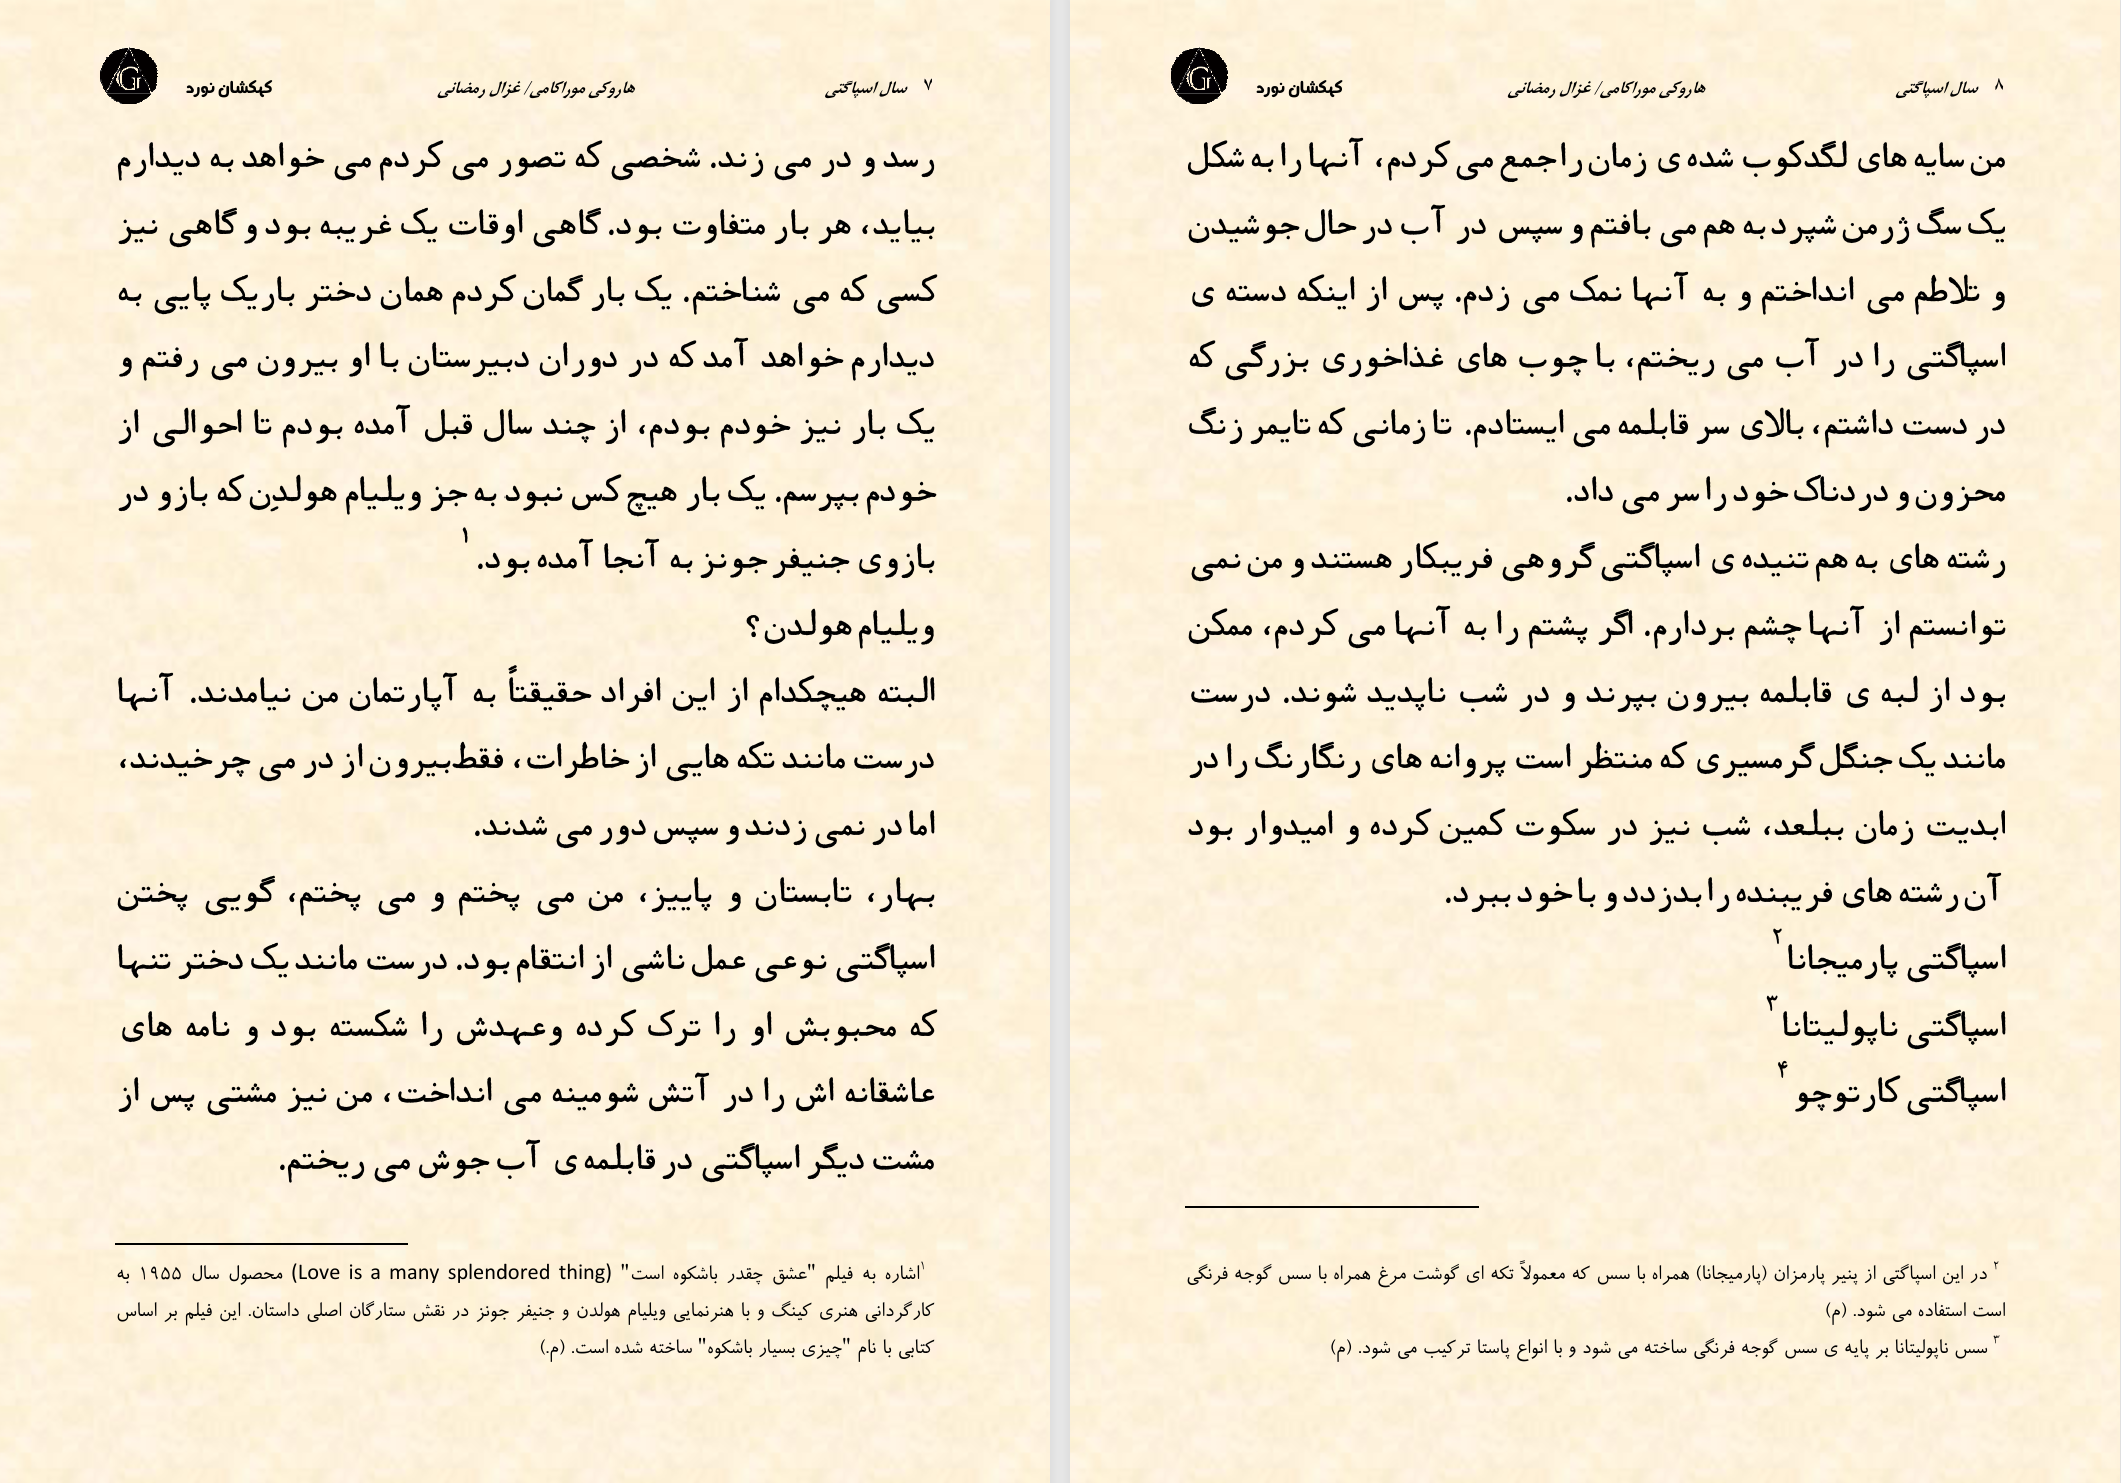 ۷ سال اسپاگتی هاروکی موراکامی/ غزال رمضانی کهکشان نورد
رسد و در می زند. شخصی که تصور می کردم می خواهد به دیدارم
بیاید، هر بار متفاوت بود. گاهی اوقات یک غریبه بود و گاهی نیز
کسی که می شناختم. یک بار گمان کردم همان دختر باریک پایی به
دیدارم خواهد آمد که در دوران دبیرستان با او بیرون می رفتم و
یک بار نیز خودم بودم، از چند سال قبل آمده بودم تا احوالی از
خودم بپرسم. یک بار هیچ کس نبود به جز ویلیام هولدِن که بازو در
بازوی جنیفر جونز به آنجا آمده بود.۱
ویلیام هولدن؟
البته هیچکدام از این افراد حقیقتاً به آپارتمان من نیامدند. آنها
درست مانند تکه هایی از خاطرات، فقط بیرون از در می چرخیدند،
اما در نمی زدند و سپس دور می شدند.
بهار، تابستان و پاییز، من می پختم و می پختم، گویی پختن
اسپاگتی نوعی عمل ناشی از انتقام بود. درست مانند یک دختر تنها
که محبوبش او را ترک کرده وعهدش را شکسته بود و نامه های
عاشقانه اش را در آتش شومینه می انداخت، من نیز مشتی پس از
مشت دیگر اسپاگتی در قابلمه ی آب جوش می ریختم.
۱اشاره به فیلم "عشق چقدر باشکوه است" (Love is a many splendored thing) محصول سال ۱۹۵۵ به
کارگردانی هنری کینگ و با هنرنمایی ویلیام هولدن و جنیفر جونز در نقش ستارگان اصلی داستان. این فیلم بر اساس
کتابی با نام "چیزی بسیار باشکوه" ساخته شده است. (م.)
۸ سال اسپاگتی هاروکی موراکامی/ غزال رمضانی کهکشان نورد
من سایه های لگدکوب شده ی زمان را جمع می کردم، آنها را به شکل
یک سگ ژرمن شپرد به هم می بافتم و سپس در آب در حال جوشیدن
و تلاطم می انداختم و به آنها نمک می زدم. پس از اینکه دسته ی
اسپاگتی را در آب می ریختم، با چوب های غذاخوری بزرگی که
در دست داشتم، بالای سر قابلمه می ایستادم. تا زمانی که تایمر زنگ
محزون و دردناک خود را سر می داد.
رشته های به هم تنیده ی اسپاگتی گروهی فریبکار هستند و من نمی
توانستم از آنها چشم بردارم. اگر پشتم را به آنها می کردم، ممکن
بود از لبه ی قابلمه بیرون بپرند و در شب ناپدید شوند. درست
مانند یک جنگل گرمسیری که منتظر است پروانه های رنگارنگ را در
ابدیت زمان ببلعد، شب نیز در سکوت کمین کرده و امیدوار بود
آن رشته های فریبنده را بدزدد و با خود ببرد.
اسپاگتی پارمیجانا۲
اسپاگتی ناپولیتانا۳
اسپاگتی کارتوچو۴
۲ در این اسپاگتی از پنیر پارمزان (پارمیجانا) همراه با سس که معمولاً تکه ای گوشت مرغ همراه با سس گوجه فرنگی
است استفاده می شود. (م)
۳ سس ناپولیتانا بر پایه ی سس گوجه فرنگی ساخته می شود و با انواع پاستا ترکیب می شود. (م)